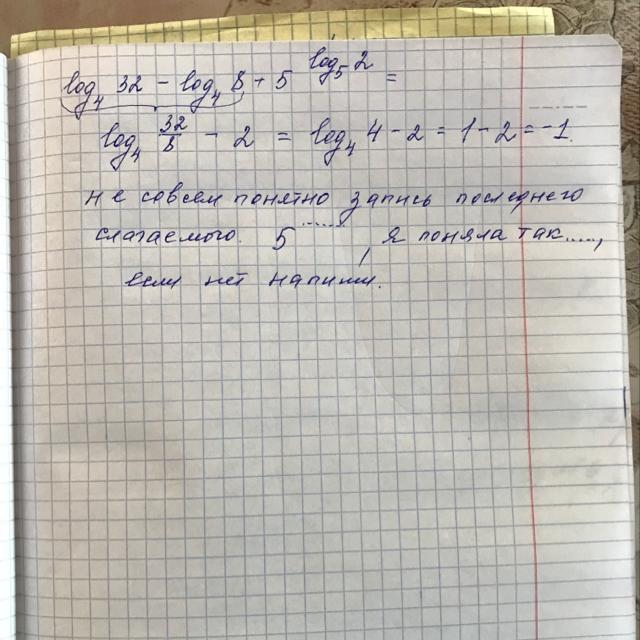 log₄ 32 − log₄ 8 + 5^(log₅ 2) =
log₄ 32/8 − 2 = log₄ 4 − 2 = 1 − 2 = −1.
не совсем понятно запись последнего
слагаемого. 5......, я поняла так.....,
если нет напиши.